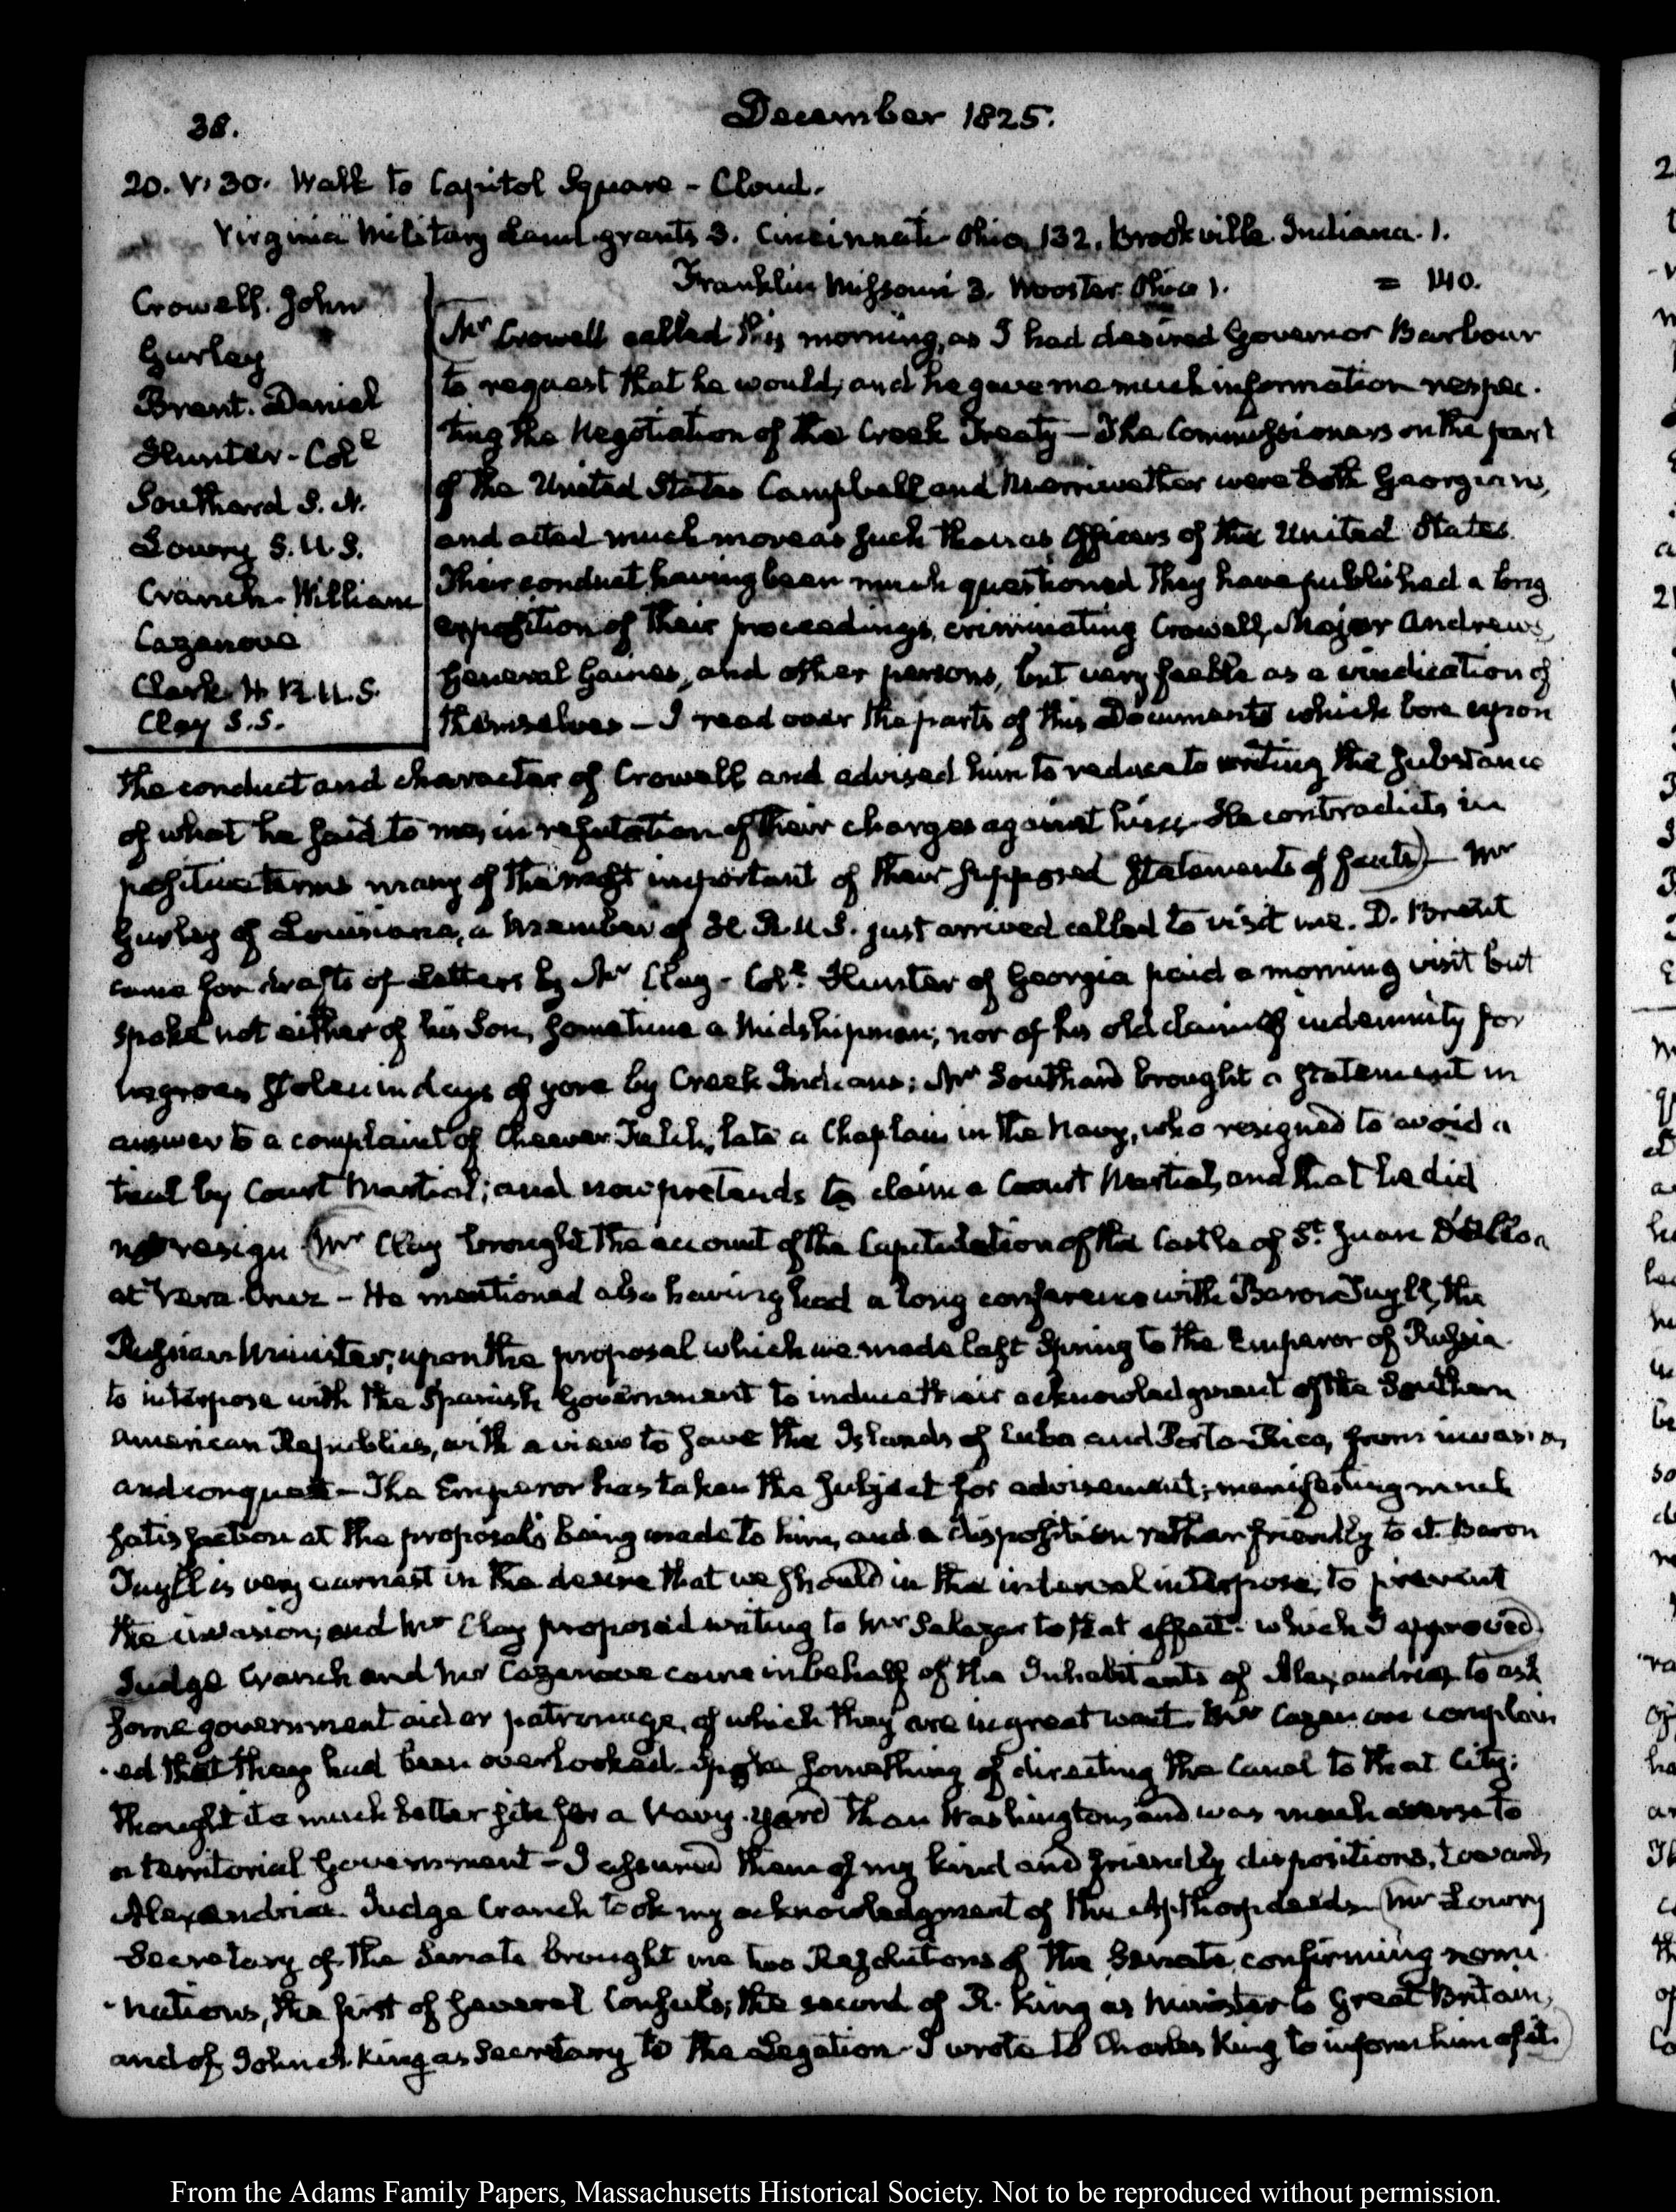 38.
December 1825.
20. V:30. Walk to Capitol Square - Cloud.
Virginia Military Land grants 3. Cincinnati Ohio 132. Brookville. Indiana. 1.
Franklin Missouri 3. Wooster. Ohio 1. = 140.
Crowell. John
Gurley
Brent. Daniel
Hunter - Col.
Southard S. N.
Lowry S. U.S.
Cranch. William
Cazenove
Clark. H R.U.S.
Clay S.S.
Mr Crowell called this morning, as I had desired Governor Barbour
to request that he would; and he gave me much information respec-
ting the Negotiation of the Creek Treaty — The Commissioners on the part
of the United States Campbell and Merriwether were both Georgians,
and acted much more as such than as Officers of the United States.
Their conduct having been much questioned They have published a long
exposition of their proceedings, criminating Crowell, Major Andrews,
General Gaines, and other persons, but very feeble as a vindication of
themselves — I read over the parts of this Documents which bore upon
the conduct and character of Crowell and advised him to reduce to writing the substance
of what he said to me, in refutation of their charges against him. He contradicts, in
positive terms many of the most important of their supposed statements of facts) — Mr
Gurley of Louisiana, a member of H. R.U.S. just arrived called to visit me. D. Brent
came for drafts of Letters by Mr Clay - Col. Hunter of Georgia paid a morning visit but
spoke not either of his Son, sometime a Midshipman; nor of his old claim of indemnity for
negroes stolen in days of yore by Creek Indians; Mr Southard brought a statement in
answer to a complaint of Cheever Felch, late a Chaplain in the Navy, who resigned to avoid a
trial by Court Martial; and now pretends to claim a Court Martial, and that he did
not resign (Mr Clay brought the account of the Capitulation of the Castle of St. Juan D'Ulloa
at Vera Cruz - He mentioned also having had a long conference with Baron Tuyll, the
Russian Minister, upon the proposal which we made last Spring to the Emperor of Russia
to interpose with the Spanish Government to induce their acknowledgment of the Southern
American Republics, with a view to save the Islands of Cuba and Porto-Rico, from invasion,
and conquest — The Emperor has taken the subject for advisement; manifesting much
satisfaction at the proposal's being made to him, and a disposition rather friendly to it. Baron
Tuyll is very earnest in the desire that we should in the interval interpose, to prevent
the invasion; and Mr Clay proposed writing to Mr Salazar to that effect. which I approved)
Judge Cranch and Mr Cazenove came in behalf of the Inhabitants of Alexandria, to ask
some government aid or patronage, of which they are in great want. Mr Cazenove complain
-ed that they had been overlooked. Spoke something of directing the Canal to that City;
thought it a much better site for a Navy-yard than Washington, and was much averse to
a territorial Government — I assured them of my kind and friendly dispositions, towards
Alexandria. Judge Cranch took my acknowledgment of the Apthorp deeds. (Mr Lowry
Secretary of the Senate brought me two Resolutions of the Senate, confirming nomi
-nations, the first of several Consuls; the second of R. King as Minister to Great Britain,
and of John A. King as Secretary to the Legation. I wrote to Charles King to inform him of it.)
From the Adams Family Papers, Massachusetts Historical Society. Not to be reproduced without permission.